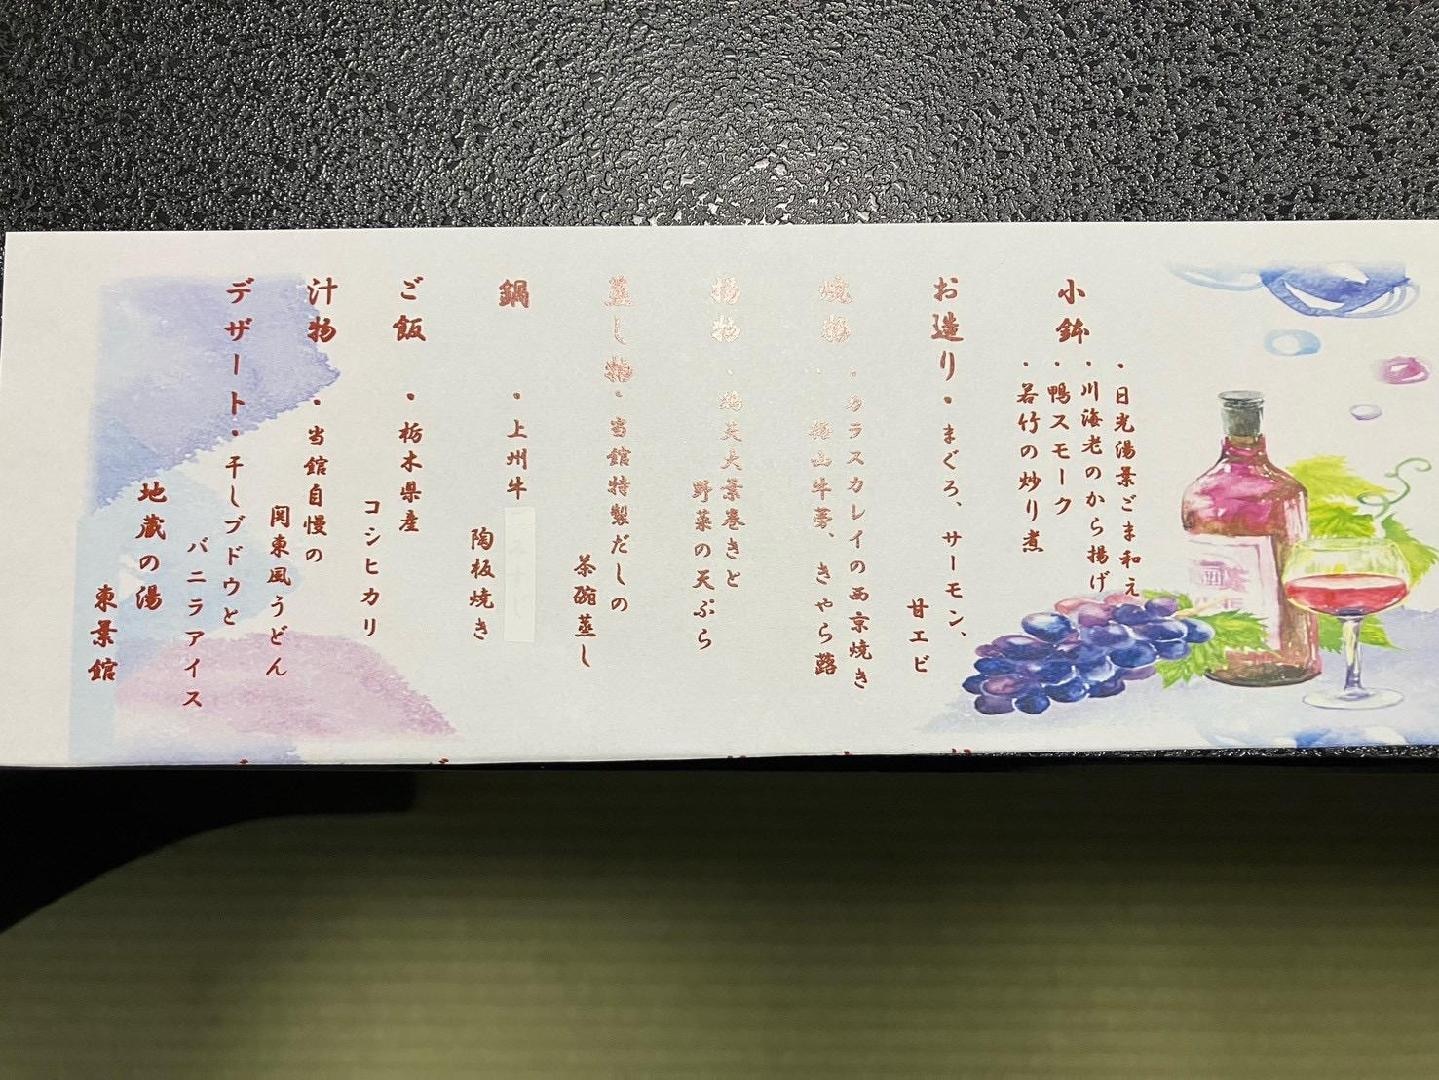 小鉢
・日光湯葉ごま和え
・川海老のから揚げ
・鴨スモーク
・若竹の炒り煮
お造り・まぐろ、サーモン、
甘エビ
焼物・カラスカレイの西京焼き
牛蒡、きゃら蕗
揚物・大葉巻きと
野菜の天ぷら
蒸し物・当館特製だしの
茶碗蒸し
鍋・上州牛
陶板焼き
ご飯・栃木県産
コシヒカリ
汁物・当館自慢の
関東風うどん
デザート・干しブドウと
バニラアイス
地蔵の湯
東葉館